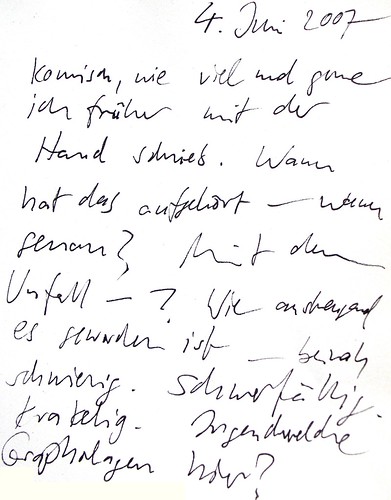 4. Juni 2007
Komisch, wie viel und gerne
ich früher mit der
Hand schrieb. Wann
hat das aufgehört – wann
genau? Mit dem
Unfall – ? Wie anstrengend
es geworden ist – beinah
schwierig. Schwerfällig.
Krakelig. Irgendwelche
Graphologen hier?